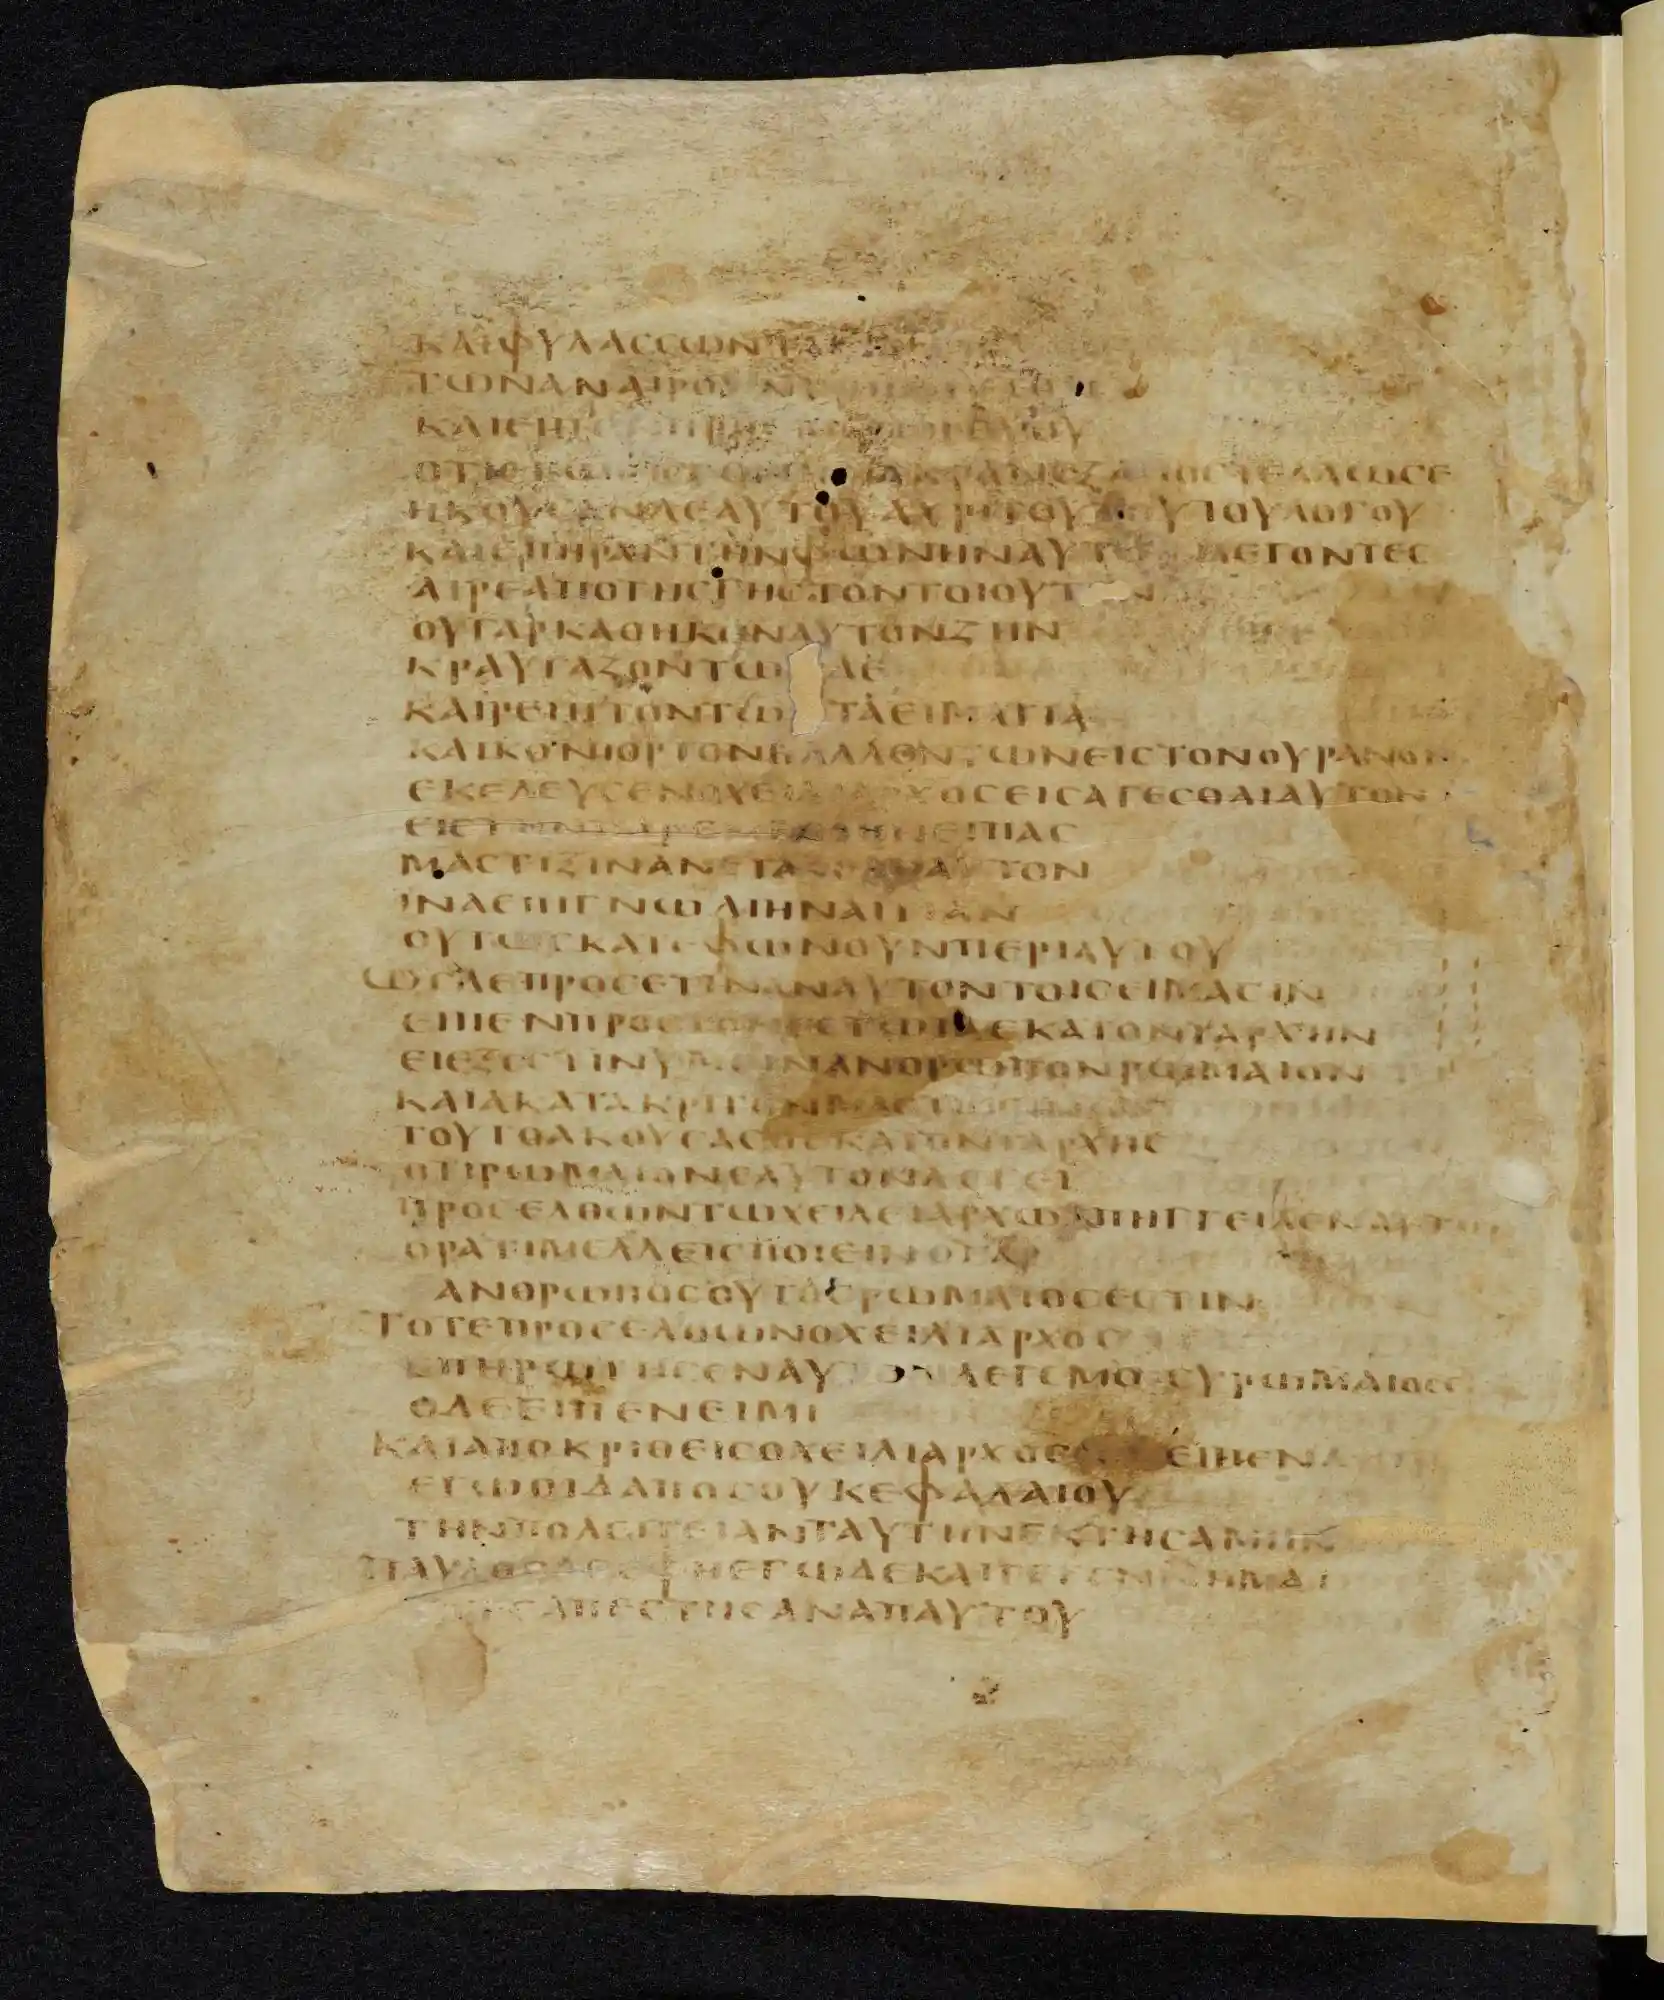 ΚΑΙΦΥΛΑССΩΝΤΑ
ΤΩΝΑΝΑΙΡΟΥΝΤΩΝ
ΚΑΙΕΙΠΕΝΠΡΟС
ΟΤΙΕΓΩΕΙСΤΑΕΘΝΗΜΑΚΡΑΝΕΞΑΠΟСΤΕΛΛΩСΕ
ΗΚΟΥСΑΝΔΕΑΥΤΟΥΑΧΡΙΤΟΥΤΟΥΤΟΥΛΟΓΟΥ
ΚΑΙΕΠΗΡΑΝΤΗΝΦΩΝΗΝΑΥΤΩΝΛΕΓΟΝΤΕС
ΑΙΡΕΑΠΟΤΗСΓΗСΤΟΝΤΟΙΟΥΤΟΝ
ΟΥΓΑΡΚΑΘΗΚΕΝΑΥΤΟΝΖΗΝ
ΚΡΑΥΓΑΖΟΝΤΩΝΔΕ
ΚΑΙΡΕΙΠΤΟΝΤΩΝΤΑΕΙΜΑΤΙΑ
ΚΑΙΚΟΝΙΟΡΤΟΝΒΑΛΛΟΝΤΩΝΕΙСΤΟΝΟΥΡΑΝΟΝ
ΕΚΕΛΕΥСΕΝΟΧΕΙΛΙΑΡΧΟСΕΙСΑΓΕСΘΑΙΑΥΤΟΝ
ΕΙСΤΗΝΠΑΡΕΜΒΟΛΗΝΕΙΠΑС
ΜΑСΤΙΞΙΝΑΝΕΤΑΖΕΙΝΑΥΤΟΝ
ΙΝΑΕΠΙΓΝΩΔΙΗΝΑΙΤΙΑΝ
ΟΥΤΩСΚΑΤΕΦΩΝΟΥΝΠΕΡΙΑΥΤΟΥ
ΩСΔΕΠΡΟСΕΤΙΝΑΝΑΥΤΟΝΤΟΙСΕΙΜΑСΙΝ
ΕΙΠΕΝΠΡΟСΤΟΝΕСΤΩΤΑΕΚΑΤΟΝΤΑΡΧΗΝ
ΕΙΕΞΕСΤΙΝΥΜΕΙΝΑΝΘΡΩΠΟΝΡΩΜΑΙΟΝ
ΚΑΙΑΚΑΤΑΚΡΙΤΟΝΜΑСΤΙΖΕΙΝ
ΤΟΥΤΟΑΚΟΥСΑСΟΕΚΑΤΟΝΤΑΡΧΗС
ΟΤΙΡΩΜΑΙΟΝΕΑΥΤΟΝΛΕΓΕΙ
ΠΡΟСΕΛΘΩΝΤΩΧΕΙΛΕΙΑΡΧΩΑΠΗΓΓΕΙΛΕΝΑΥΤΩ
ΟΡΑΤΙΜΕΛΛΕΙСΠΟΙΕΙΝΟΓΑΡ
ΑΝΘΡΩΠΟСΟΥΤΟСΡΩΜΑΙΟСΕСΤΙΝ
ΤΟΤΕΠΡΟСΕΛΘΩΝΟΧΕΙΛΙΑΡΧΟС
ΕΠΗΡΩΤΗСΕΝΑΥΤΟΝΛΕΓΕΜΟΙСΥΡΩΜΑΙΟСΕ
ΟΔΕΕΙΠΕΝΕΙΜΙ
ΚΑΙΑΠΟΚΡΙΘΕΙСΟΧΕΙΛΙΑΡΧΟСΕΙΠΕΝ
ΕΓΩΟΙΔΑΠΟСΟΥΚΕΦΑΛΑΙΟΥ
ΤΗΝΠΟΛΕΙΤΕΙΑΝΤΑΥΤΗΝΕΚΤΗСΑΜΗΝ
ΠΑΥΛΟСΔΕΕΦΗΕΓΩΔΕΚΑΙΓΕΓΕΝΝΗΜΑΙ
ΑΠΕСΤΗСΑΝΑΠΑΥΤΟΥ